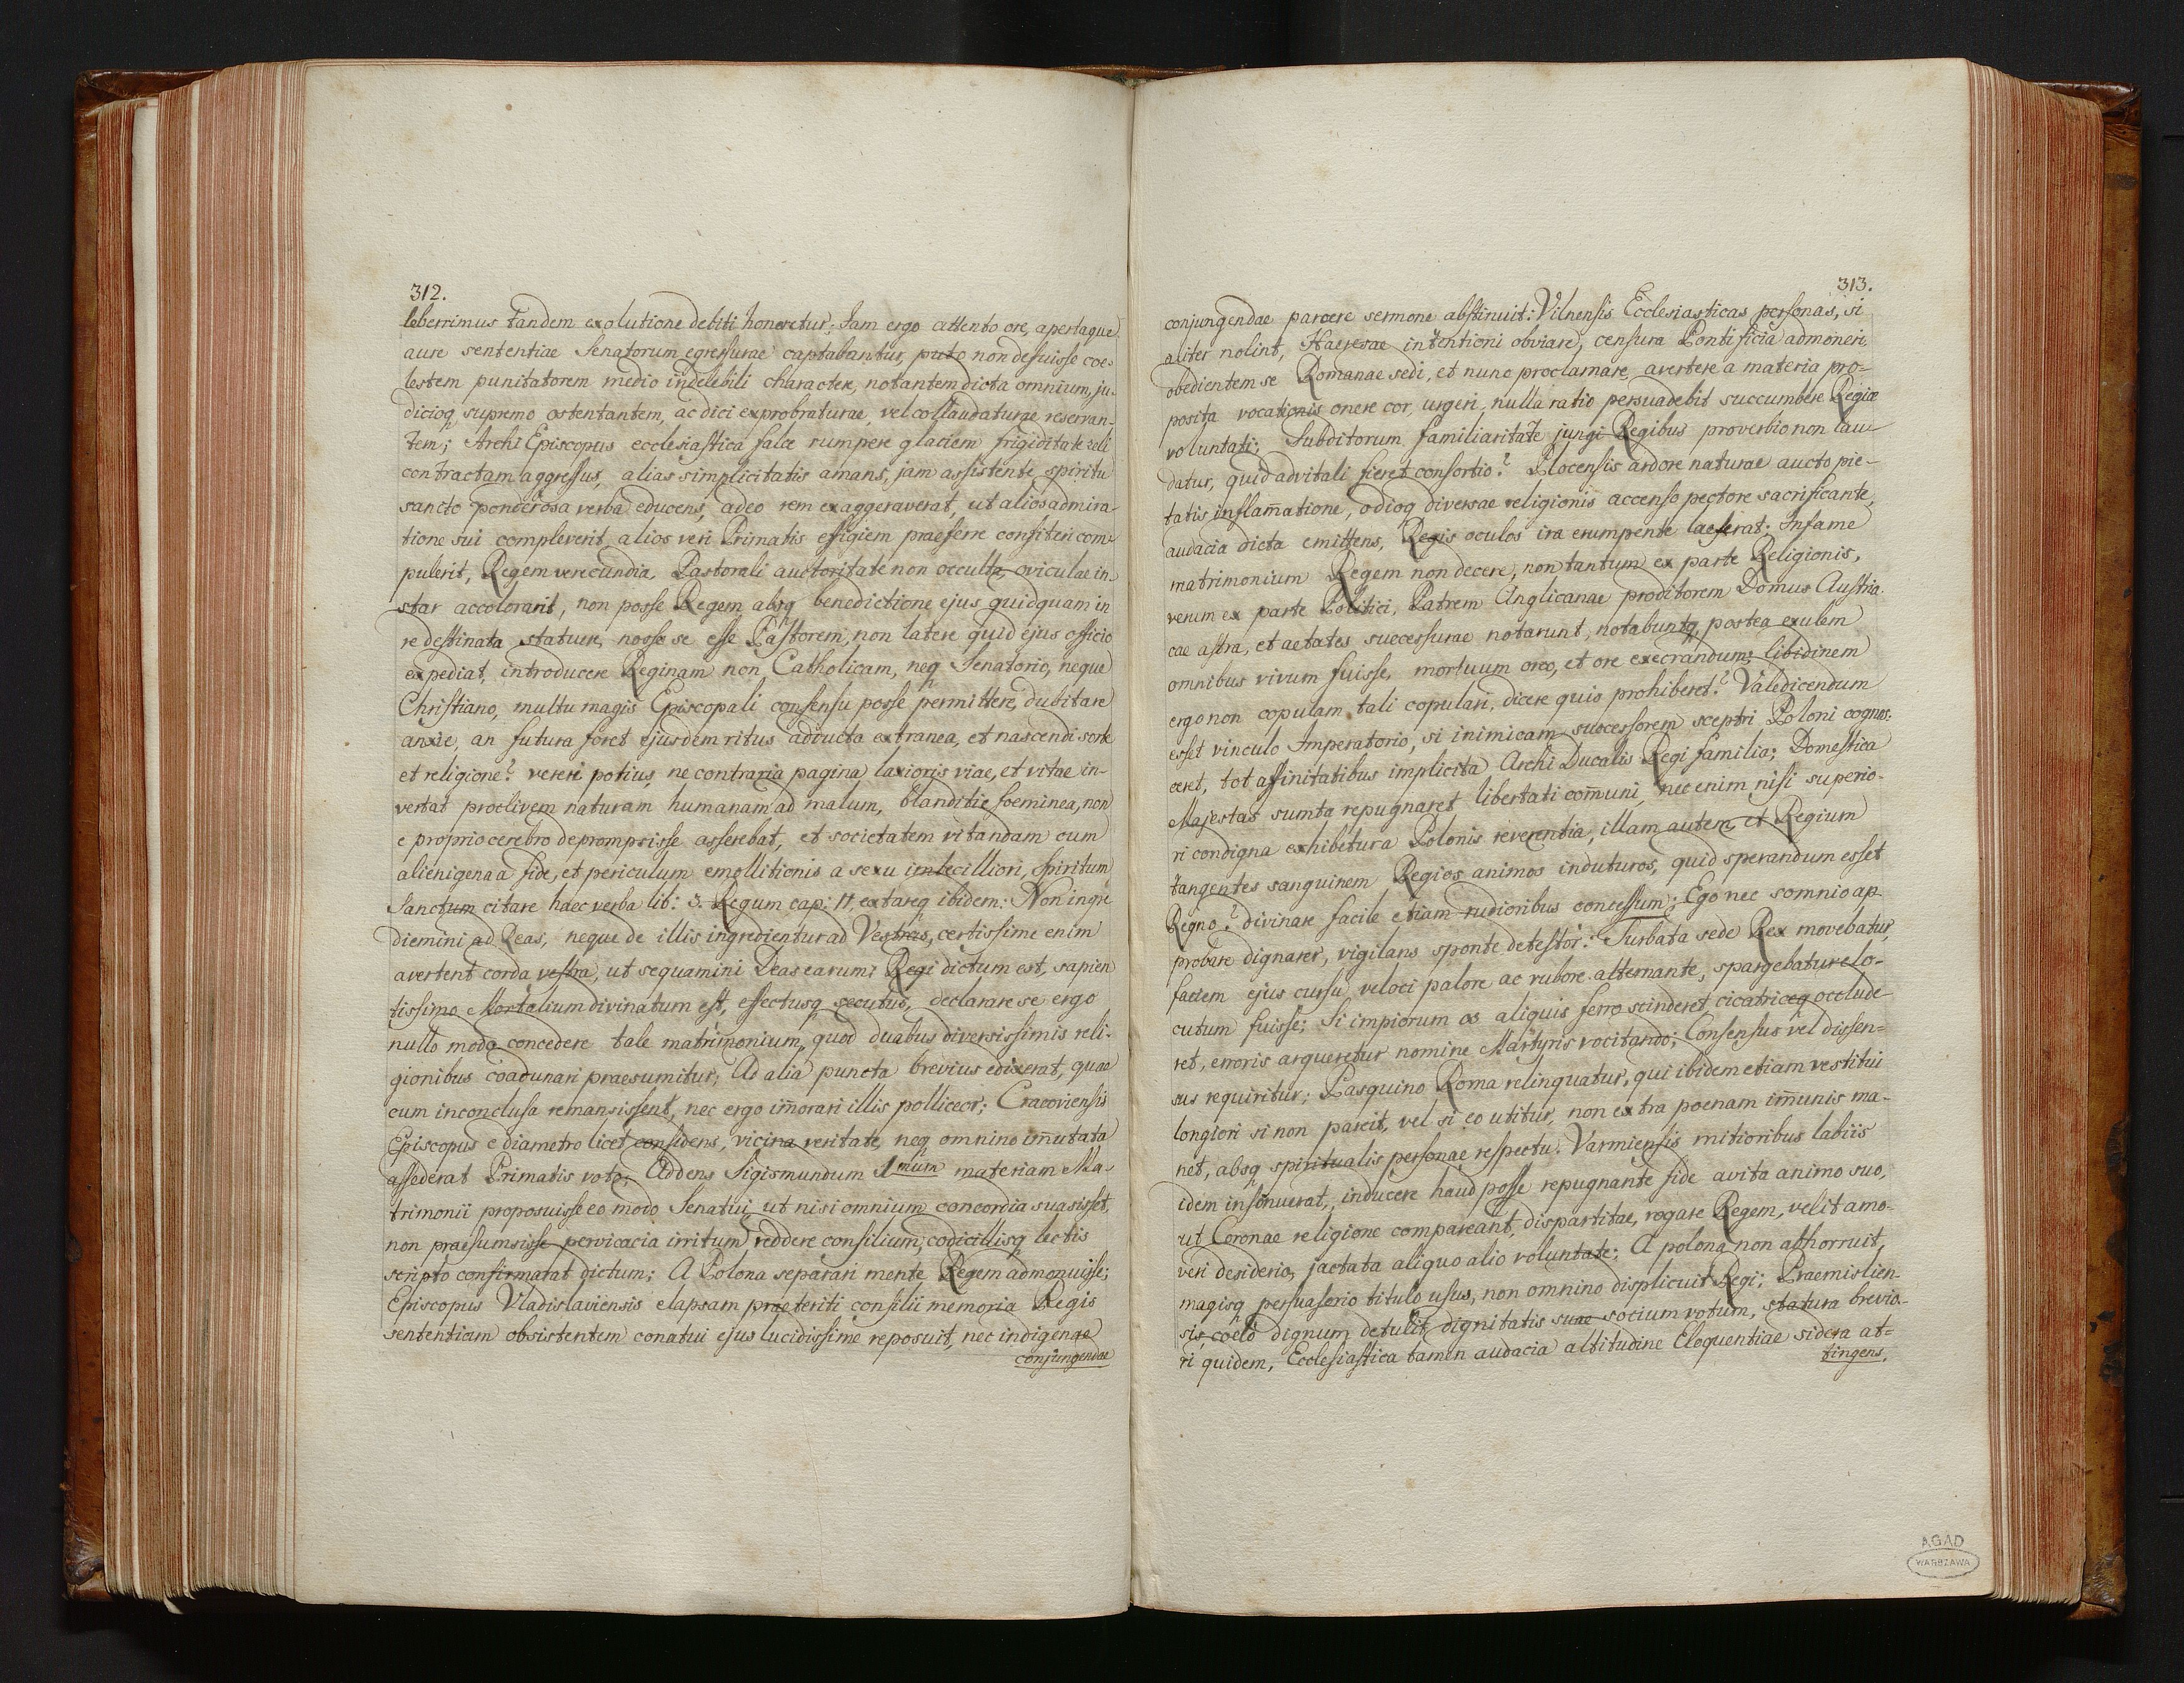 312.
leberrimus tandem exolutione debiti honeretur; Jam ergo attento ore, apertaque
aure sententiae Senatorum egressurae captabantur, puto non defuisse coe-
lestem punitatorem medio indelebili charactere, notantem dicta omnium, ju-
dicioq supremo ostentantem, ac dici exprobraturae, vel collaudaturae reservan-
tem; Archi Episcopus ecclesiastica falce rumpere glaciem frigiditate zeli
contractam aggressus, alias simplicitatis amans, jam assistente spiritu
sancto ponderosa verba educens, adeo rem exaggeraverat, ut alios admira-
tione sui compleverit, alios veri Primatis effigiem praeferre confiteri com-
pulerit, Regem verecundia, Pastorali auctoritate non occulta, oviculae in-
star accolorarit, non posse Regem absq benedictione ejus quidquam in
re destinata statuere, nosse se esse Pastorem, non latere quid ejus officio
expediat, introducere Reginam non Catholicam, neq Senatorio, neque
Christiano, multu magis Episcopali consensu posse permittere, dubitare
anxie, an futura foret ejusdem ritus adducta extranea, et nascendi sorte
et religione? vereri potius, ne contraria pagina laxioris viae, et vitae in-
vertat proclivem naturam humanam ad malum, blanditie foeminea, non
e proprio cerebro deprompsisse asserebat, et societatem vitandam cum
alienigena a fide, et periculum emollitionis a sexu imbecilliori, Spiritum
Sanctum citare haec verba lib: 3. Regum cap: 11, extareq ibidem: Non ingre
diemini ad Deas, neque de illis ingredientur ad Vestras, certissime enim
avertent corda vestra, ut sequamini Deas earum; Regi dictum est, sapien
tissimo Mortalium divinatum est, effectusq secutus, declarare se ergo
nullo modo concedere tale matrimonium, quod duabus diversissimis reli-
gionibus coadunari praesumitur; Ad alia puncta brevius edixerat, quae
cum inconclusa remansissent, nec ergo im̄orari illis polliceor; Cracoviensis
Episcopus e diametro licet considens, vicina veritate, neq omnino im̄utata
assederat Primatis voto; Addens Sigismundum 1mum materiam Ma-
trimonii proposuisse eo modo Senatui, ut nisi omnium concordia suasisset,
non praesumsisse pervicacia irritum reddere consilium, codicillisq lectis
scripto confirmarat dictum; A Polona separari mente Regem admonuisse;
Episcopus Vladislaviensis elapsam praeteriti consilii memoria Regis
sententiam obsistentem conatui ejus lucidissime reposuit, nec indigenae
conjungendae
313.
conjungendae parcere sermone abstinuit: Vilnensis Ecclesiasticas personas, si
aliter nolint, Haeresae intentioni obviare, censura Pontificia admoneri,
obedientem se Romanae sedi, et nunc proclamare, avertere a materia pro-
posita vocationis onere cor, urgeri, nulla ratio persuadebit succumbere Regiae
voluntati; Subditorum familiaritate jungi Regibus proverbio non lau-
datur, quid advitali fieret consortio? Plocensis ardore naturae aucto pie-
tatis inflam̄atione, odioq diversae religionis accenso pectore sacrificante,
audacia dicta emittens, Regis oculos ira erumpente laeserat: Infame
matrimonium Regem non decere, non tantum ex parte Religionis,
verum ex parte Politici, Patrem Anglicanae proditorem Domus Austria-
cae astra, et aetates successurae notarunt, notabuntq postea exulem
omnibus vivum fuisse, mortuum orco, et ore execrandum; libidinem
ergo non copulam tali copulari, dicere quis prohiberet? Valedicendum
esset vinculo Imperatorio, si inimicam successorem sceptri Poloni cognos-
ceret, tot affinitatibus implicita Archi Ducalis Regi familia; Domestica
Majestas sumta repugnaret libertati com̄uni, nec enim nisi superio-
ri condigna exhibetura Polonis reverentia, illam autem, et Regium
tangentes sanguinem Regios animos induturos, quid sperandum esset
Regno? divinare facile etiam rudioribus concessum; Ego nec somnio ap
probare dignarer, vigilans sponte detestor: Turbata sede Rex movebatur,
faciem ejus cursu veloci palore ac rubore alternante, spargebatur elo-
cutum fuisse; Si impiorum os aliquis ferro scinderet cicatriceq occlude-
ret, erroris argueretur nomine Martyris vocitando; Consensus vel dissen-
sus requiritur; Pasquino Roma relinquatur, qui ibidem etiam vestitui
longiori si non parcit, vel si eo utitur, non extra poenam im̄unis ma-
net, absq spiritualis personae respectu: Varmiensis mitioribus labiis
idem insonuerat, inducere haud posse repugnante fide avita animo suo,
ut Coronae religione compareant, dispartitae, rogare Regem, velit amo-
veri desiderio, jactata aliquo alio voluntate; A polona non abhorruit,
magisq persuasorio titulo usus, non omnino displicuit Regi; Praemislien-
sis coelo dignum detulit dignitatis suae socium votum, statura brevio-
ri quidem, Ecclesiastica tamen audacia altitudine Eloquentiae sidera at-
tingens,
AGAD
WARSZAWA